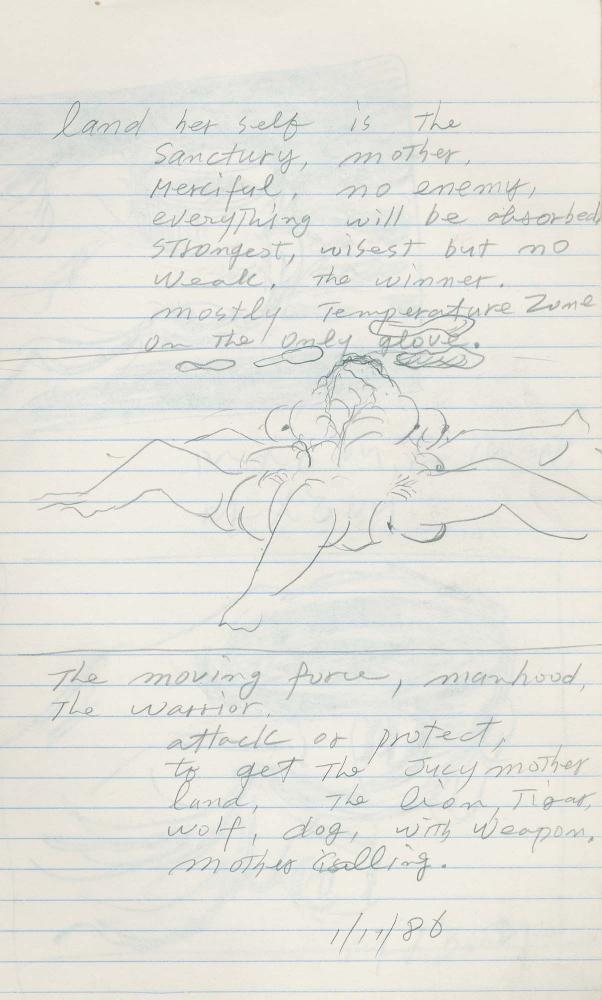 land her self is the
Sanctury, mother,
Merciful, no enemy,
everything will be absorbed
strongest, wisest but no
weak, the winner.
mostly Temperature Zone
on the only glove.
The moving force, manhood,
The warrior.
attack or protect,
to get the Jucy mother
land, the lion, Tigar,
wolf, dog, with weapon.
mother calling.
1/11/86